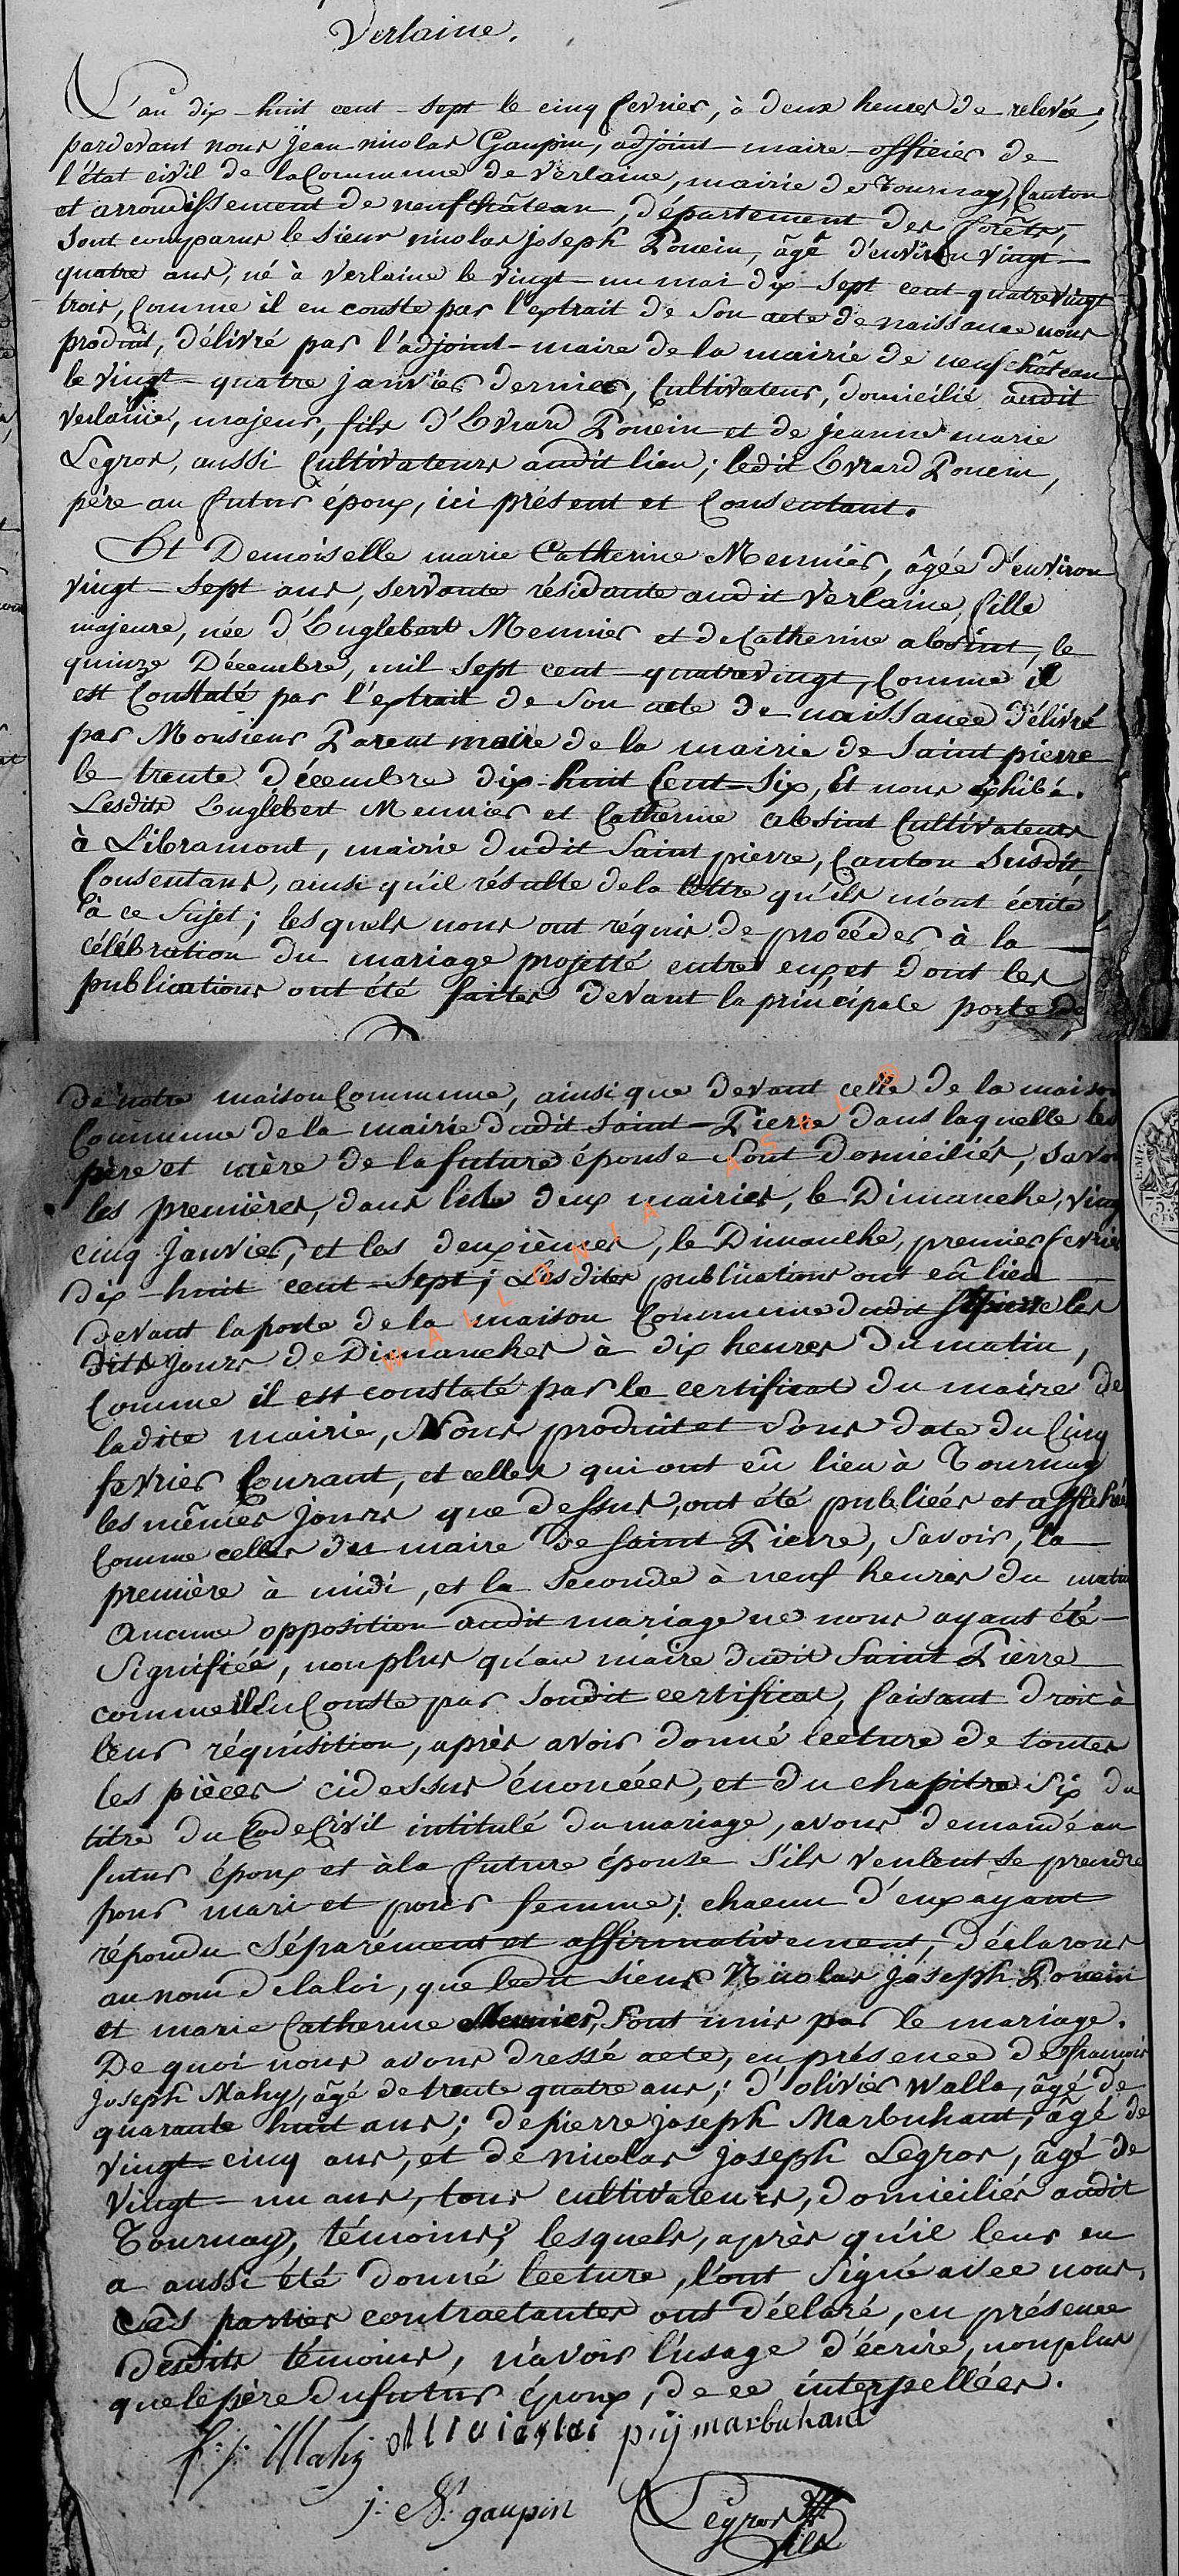 Verlaine.
L'an dix-huit cent-sept le cinq fevrier, à deux heures de relevée,
pardevant nous jean nicolas Gaupin, adjoint-maire-officier de
l'état civil de la Commune de Verlaine, mairie de Tournay, Canton
et arrondissement de neufchâteau, département des forêts,
Sont comparus le sieur nicolas joseph Poncin, âgé d'environ vingt-
quatre ans, né à Verlaine le vingt-un mai dix-sept cent-quatrevingt-
trois, Comme il en conste par l'extrait de Son acte de naissance nous
produit, délivré par l'adjoint-maire de la mairie de neufchâteau
le vingt-quatre janvier dernier, Cultivateur, domicilié audit
Verlaine, majeur, fils d'Evrard Poncin et de jeanne marie
Legros, aussi Cultivateurs audit lieu; ledit Evrard Poncin,
père au futur époux, ici présent et Consentant.
Et Demoiselle marie Catherine Meunier, âgée d'environ
vingt-sept ans, servante résidante audit Verlaine, fille
majeure, née d'Englebert Meunier et de Catherine absint, le
quinze Décembre, mil sept cent quatrevingt, Comme il
est Constaté par l'extrait de Son acte de naissance délivré
par Monsieur Parent maire de la mairie de Saint pierre
le trente décembre dix-huit Cent-Six, Et nous exhibé.
Lesdits Englebert Meunier et Catherine absint Cultivateurs
à Libramont, mairie dudit Saint pierre, Canton susdit,
Consentans, ainsi qu'il résulte de la lettre qu'ils m'ont écrite
à ce Sujet; lesquels nous ont réquis de procéder à la
célébration du mariage projetté entre eux, et dont les
publications ont été faites devant la principale porte de
de notre maison Commune, ainsi que devant celle de la maison
Commune de la mairie dudit Saint-Pierre dans laquelle les
père et mère de la future épouse Sont domiciliés, savoir
les premières, dans les deux mairies, le Dimanche, vingt
cinq Janvier, et les deuxièmes, le Dimanche, premier fevrier
dix-huit cent-Sept; Lesdites publications ont eû lieu
devant la porte de la maison Commune dudit St pierre les
dits jours de Dimanches à dix heures du matin,
Comme il est constaté par le certificat du maire de
ladite mairie, Nous produit et sous date du Cinq
fevrier Courant, et celles qui ont eû lieu à Tournay
les mêmes jours que dessus, ont été publiées et affichées
Comme celles du maire de Saint Pierre, Savoir, la
première à midi, et la Seconde à neuf heures du matin
Aucune opposition audit mariage ne nous ayant été
Signifiée, nonplus qu'au maire dudit Saint Pierre
comme il en Conste par Sondit certificat, faisant droit à
leur réquisition, après avoir donné lecture de toutes
les pièces cidessus énoncées, et du chapitre Six du
titre du Code Civil intitulé du mariage, avons demandé au
futur époux et à la future épouse S'ils veulent Se prendre
pour mari et pour femme; chacun d'eux ayant
répondu séparément et affirmativement, déclarons
au nom de la loi, que ledit sieur Nicolas Joseph Poncin
et marie Catherine Meunier, Sont unis par le mariage.
De quoi nous avons dressé acte, en présence de françois
Joseph Mahy, âgé de trente quatre ans; d'olivier Walla, âgé de
quarante huit ans; de pierre joseph Marbuhant, âgé de
vingt-cinq ans, et de nicolas joseph Legros, âgé de
vingt-un ans, tous cultivateurs, domiciliés audit
Tournay, témoins; lesquels, après qu'il leur en
a aussi été donné lecture, l'ont Signé avec nous,
Les parties contractantes ont déclaré, en présence
desdits témoins, n'avoir l'usage d'écrire, nonplus
que le père du futur époux, de ce interpellées.
f: j: Mahy pij marbuhant
j: N: gaupin Legros fils
WALLONIA ASBL ®